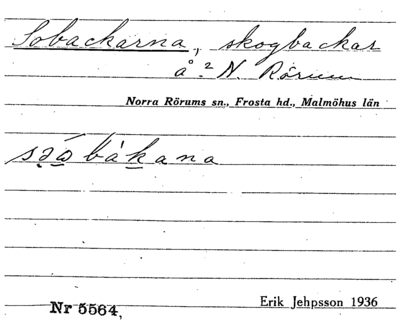 Sobackarna, skogbackar
å 2 N. Rörum
Norra Rörums sn., Frosta hd., Malmöhus län
bákana
Nr 5564,
Erik Jehpsson 1936